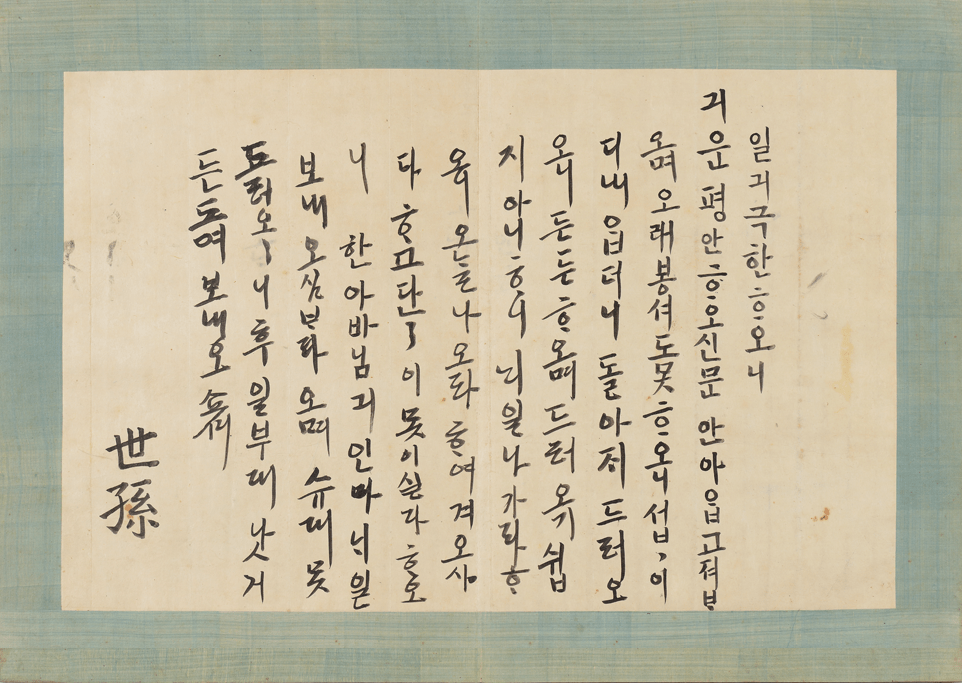 일긔극한ᄒᆞ오니
긔운평안ᄒᆞ오신문안아ᄋᆞᆸ고져ᄇᆞ라
오며오래봉셔도못ᄒᆞ오니섭섭이
디내ᄋᆞᆸ더니돌아저드러오
오니든든ᄒᆞ오며드러오기쉽
지아니ᄒᆞ니ᄂᆡ일나가라ᄒᆞ
오니오ᄂᆞᆯ나오라ᄒᆞ여겨오시
다ᄒᆞ고단〻이못이실다ᄒᆞ오
니 한아바님긔인마ᄂᆡ일
보내오심ᄇᆞ라오며슈대못
드러오〻니후일부대낫거
든ᄃᆞ려보내오쇼셔
世孫